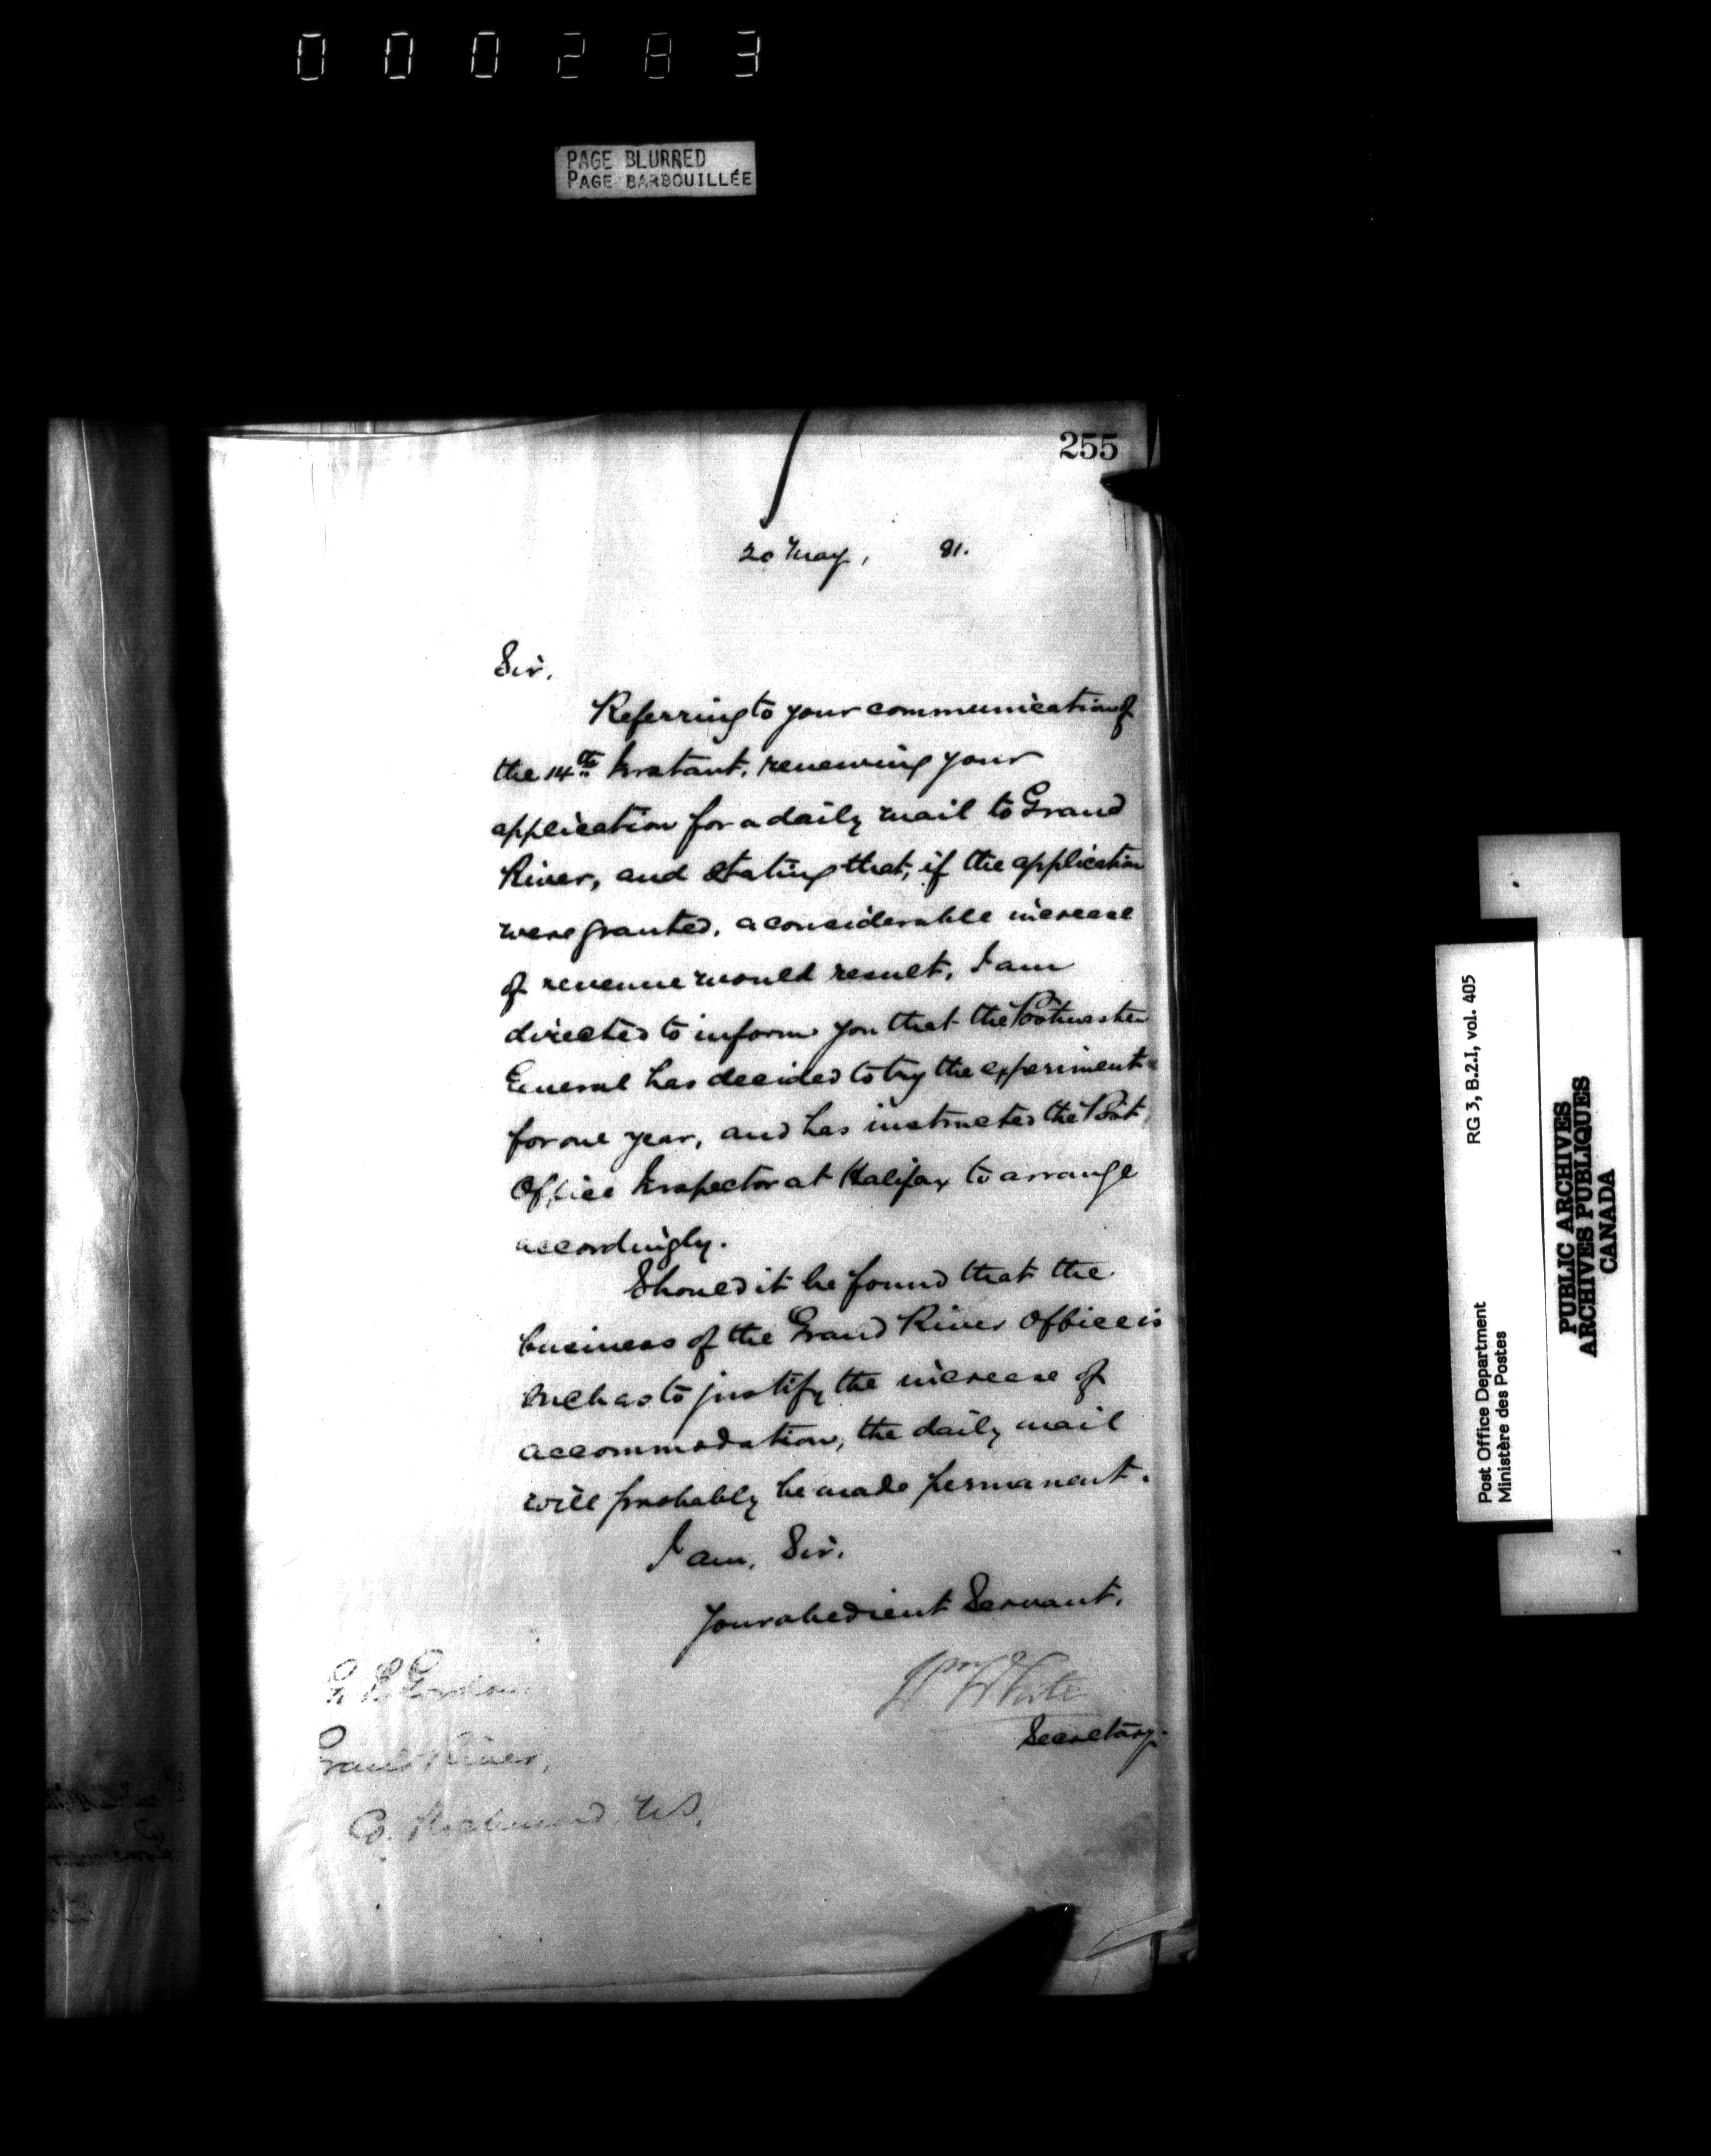 000283
PAGE BLURRED
PAGE BARBOUILLÉE
255
20 May, 81.
Sir,
Referring to your communication of
the 14th Instant, renewing your
application for a daily mail to Grand
River, and stating that, if the application
were granted, a considerable increase
of revenue would result, I am
directed to inform you that the Postmaster
General has decided to try the experiment
for one year, and has instructed the Post
Office Inspector at Halifax to arrange
accordingly.
Should it be found that the
business of the Grand River Office is
such as to justify the increase of
accommodation, the daily mail
will probably be made permanent.
I am, Sir,
Your obedient Servant,
Wm White
Secretary.
Gordon
Grand River,
Co. Richmond, N.S.
Post Office Department RG 3, B.2.I, vol. 405
Ministère des Postes
PUBLIC ARCHIVES
ARCHIVES PUBLIQUES
CANADA